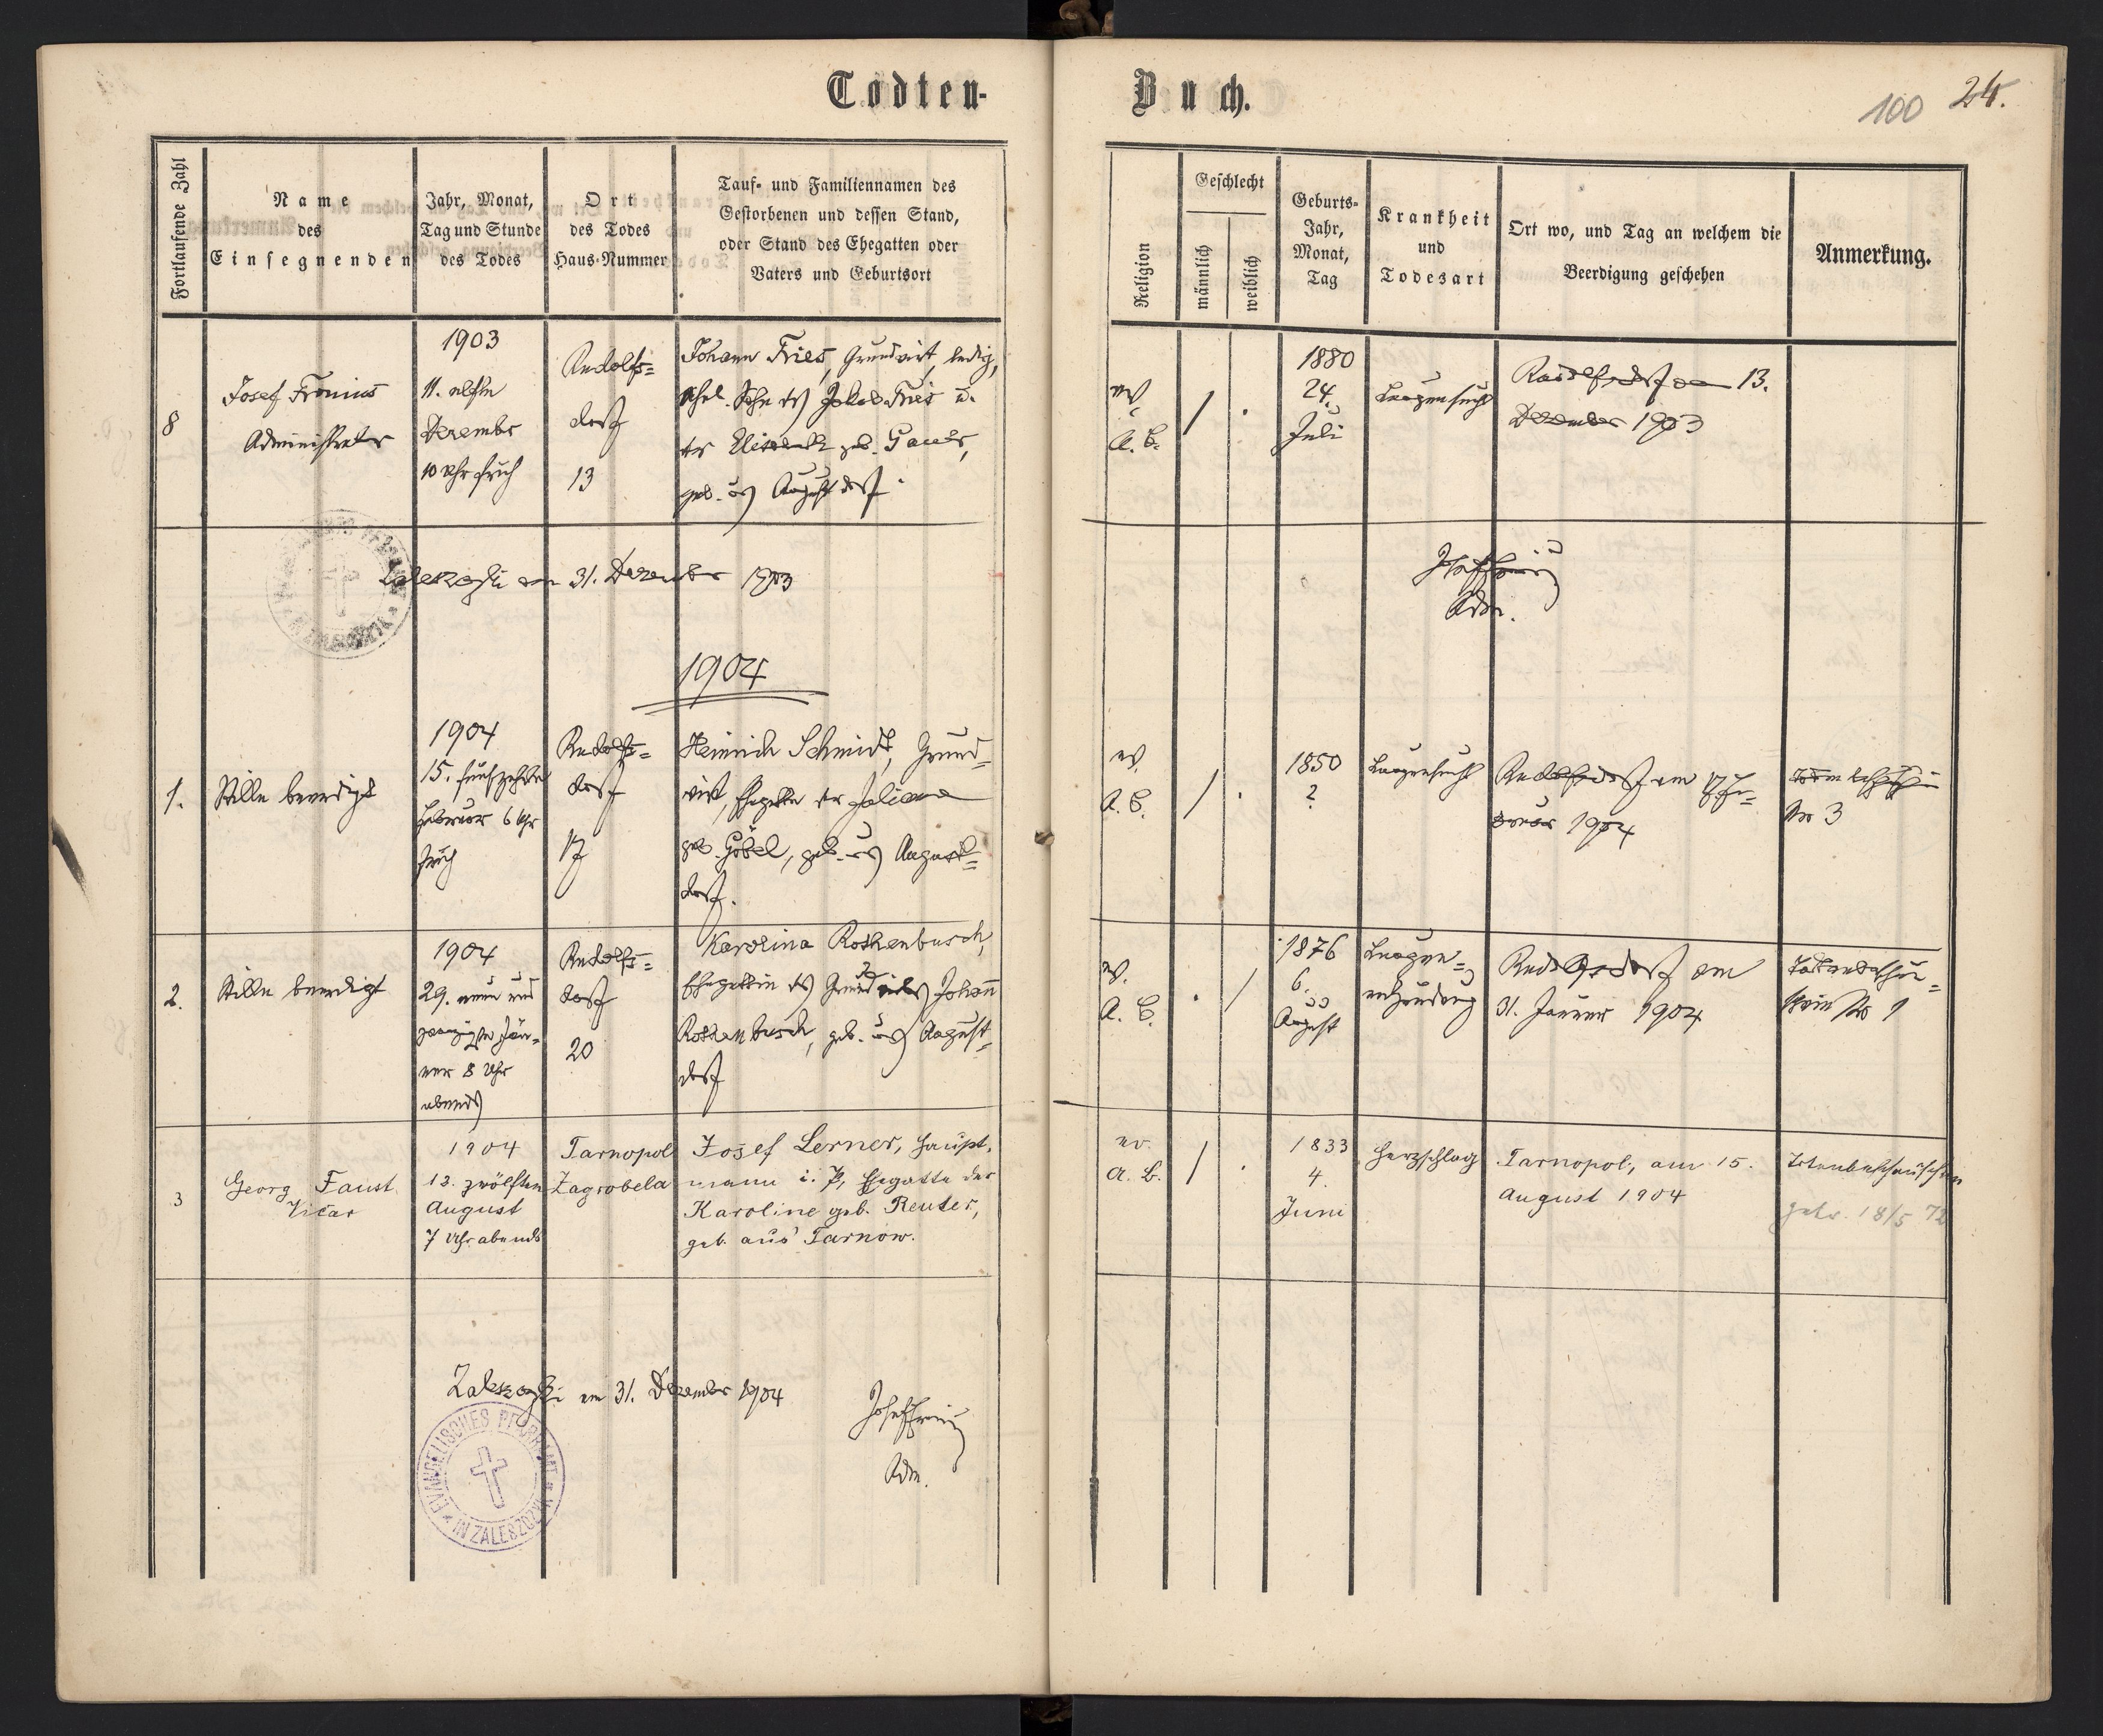 Todten-
Buch.
100 24.
Fortlaufende Zahl
Name
des
Einsegnenden
Jahr, Monat,
Tag und Stunde
des Todes
Ort
des Todes
Haus-Nummer
Tauf- und Familiennamen des
Gestorbenen und dessen Stand,
oder Stand des Ehegatten oder
Vaters und Geburtsort
Religion
Geschlecht
männlich
weiblich
Geburts-
Jahr,
Monat,
Tag
Krankheit
und
Todesart
Ort wo, und Tag an welchem die
Beerdigung geschehen
Anmerkung.
8
Josef Fronius
Administrator
1903
11. elfte
Dezember
10 Uhr früh
Rudolfs=
dorf
13
Johann Fries, Grundwirt, ledig,
ehel. Sohn des Jakob Fries u.
der Elisabeth geb.
geb. aus Augustdorf.
ev.
A. B.
/ .
1880
24.
Juli
Lungensucht
Rudolfsdorf am 13.
Dezember 1903
Zaleszczyki am 31. Dezember 1903
Adm.
1904
1.
Stille beerdigt
1904
15. fünfzehnte
Februar 6 Uhr
früh
Rudolfs=
dorf
17
Heinrich Schmidt, Grund=
wirt, Ehegatte der Juliana
geb. Göbel, geb. aus August=
dorf.
ev.
A. B.
/ .
1850
?
Lungensucht
Rudolfsdorf am 17. Fe=
bruar 1904
No 3
2.
Stille beerdigt
1904
29. neun und
zwanzigste Jän=
ner 8 Uhr
abends
Rudolfs=
dorf
20
Karolina Rothenbusch,
Ehegattin des Grundwirtes Johann
Rothenbusch, geb. aus August=
dorf
ev.
A. B.
. /
1876
6.
August
Lungen=
entzündung
Rudolfsdorf am
31. Jänner 1904
Totenbeschau=
schein No 1
3
Georg Faust
Vicar
1904
12. zwölften
August
7 Uhr abends
Tarnopol
Zagrobela
Josef Lerner, Haupt-
mann i. P., Ehegatte der
Karoline geb. Reuter,
geb. aus Tarnow.
ev.
A. B.
/ .
1833
4.
Juni
Herzschlag
Tarnopol, am 15.
August 1904
Totenbeschauschein
getr. 18/5 72
Zaleszczyki am 31. Dezember 1904
Adm.
EVANGELISCHES PFARRAMT
IN ZALESZCZYKI